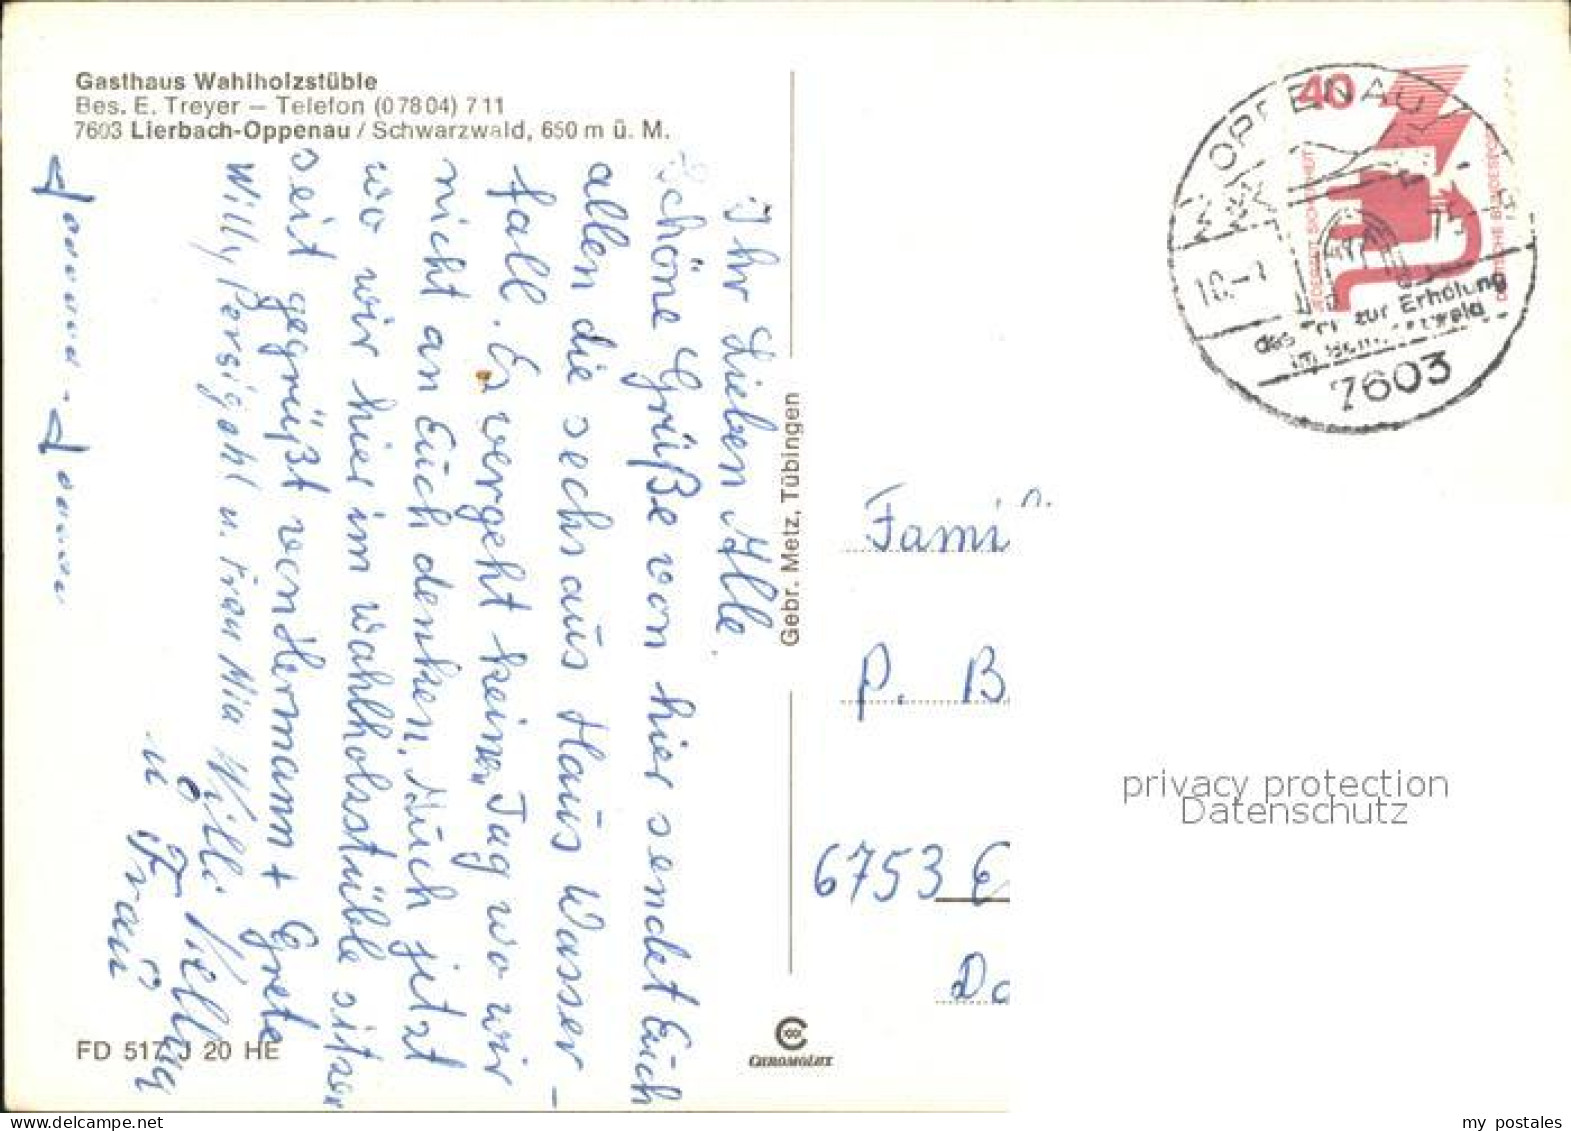 Gasthaus Wahlholzstüble
Bes. E. Treyer – Telefon (07804) 711
7603 Lierbach-Oppenau / Schwarzwald, 650 m ü. M.
Ihr Lieben Alle.
Schöne Grüße von hier sendet Euch
allen die sechs aus Haus Wasser-
fall. Es vergeht keiner Tag wo wir
nicht an Euch denken. Auch jetzt
wo wir hier im Wahlholsstüble sitzen
seit gegrüßt von Hermann + Grete
Willy Persigehl u. Frau Mia Willi
u Frau
Gebr. Metz, Tübingen
FD 517 J 20 HE
CHROMOLUX
40
JEDERZEIT SICHERHEIT
DEUTSCHE BUNDESPOST
OPPENAU
10.-
zur Erholung
7603
Fami
P. B.
6753 E
privacy protection
Datenschutz
my postales